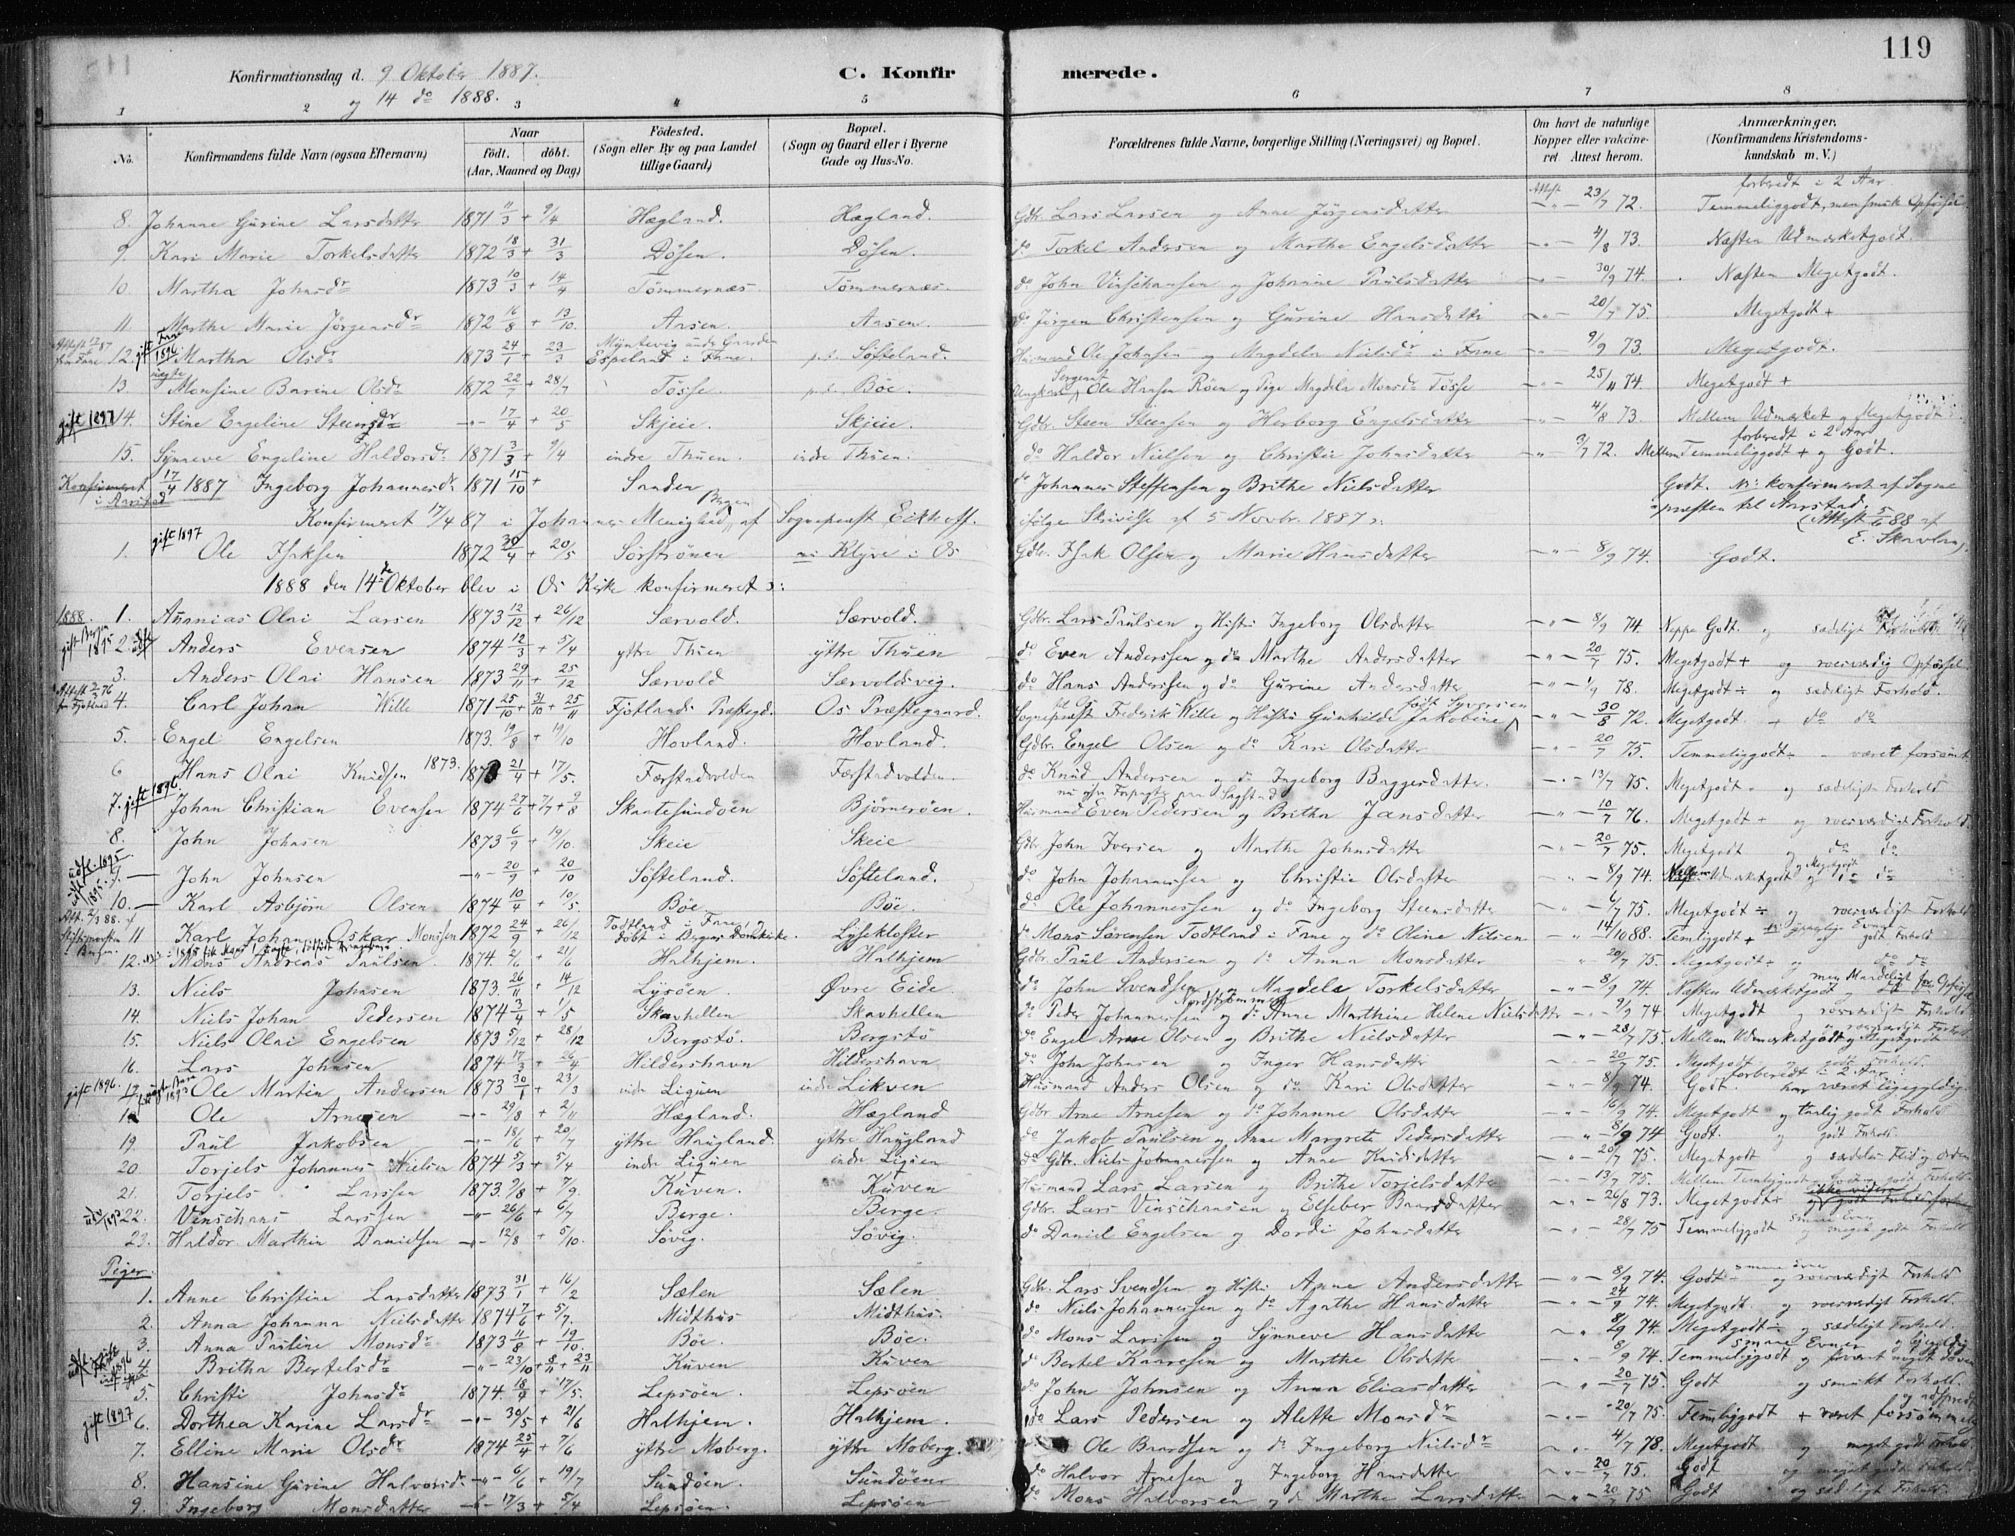 119
Konfirmationsdag d. 9 Oktober 1887.
og 14 do 1888.
C. Konfirmerede.
1 2 3 4 5 6 7 8
No. Konfirmandens fulde Navn (ogsaa Efternavn) Naar født, døbt. (Aar, Maaned og Dag) Fødested. (Sogn eller By og paa Landet tillige Gaard) Bopæl. (Sogn og Gaard eller i Byerne Gade og Hus-No. Forældrenes fulde Navne, borgerlige Stilling (Næringsvei) og Bopæl. Om havt de naturlige Kopper eller vakcineret Attest herom. Anmærkninger. (Konfirmandens Kristendomskundskab m. V.)
forberedt i 2 Aar
8. Johanne Gurine Larsdatter 1871 11/3 + 9/4 Hægland. Hægland. Gdbr. Lars Larsen og Anne Jørgensdatter Attest 23/7 72. Temmeliggodt, men smuk Opførsel
9. Kari Marie Torkelsdatter 1872 18/3 + 31/3 Døsen. Døsen. do Torkel Andersen og Marthe Engelsdatter 4/8 73. Næsten Udmærketgodt.
10. Martha Johnsdr 1873 10/3 + 14/4 Tømmernæs. Tømmernæs. do John Vinschansen og Johanne Paulsdatter 30/9 74. Næsten Megetgodt.
11. Marthe Marie Jörgensdr 1872 16/8 + 13/10. Aasen. Aasen. do Jörgen Christensen og Gurine Hansdatter 20/7 75 Megetgodt +
12. gift Fane 1896 Martha Olsdr 1873 24/1 + 23/3 Espeland i Fane. Søfteland. Husmand Ole Johnsen og Magdela Nielsdr i Fane 9/9 73. Megetgodt.
13 uægte Monsine Barine Olsdr 1872 22/7 + 28/7 Tøsse. Bøe. Ungkarl Sergeant Ole Hansen Röen og Pige Magdela Monsdr Tøsse 25/11 74. Megetgodt +
gift 1897 14. Stine Engeline Steensdr 17/4 + 20/5 Skjeie. Skjeie. Gdbr. Steen Steensen og Herborg Engelsdatter 4/8 73. Mellem Udmærket og Megetgodt
forberedt i 2 Aar
15. Synneve Engeline Haldorsdr 1871 3/3 + 9/4 indre Thuen. indre Thuen. do Haldor Nielsen og Christie Johnsdatter 72. Mellem Temmeliggodt + og Godt.
Konfirmeret i Aarstad 17/4 1887 Ingeborg Johannesdr 1871 15/10 + Sanden do Johannes Steffensen og Brithe Nielsdatter Godt. NB: konfirmeret af Sogne
Konfirmeret 17/4 87 i Johannes Menighed Bergen af Sognepræst Eikhoff. ifølge Skrivelse af 5 Novbr. 1887 præsten til Aarstad. (Attest 5/6 88 af E. Skavlan).
gift 1897 1. Ole Isaksen 1872 30/4 + 20/5 Sørstrønen Klyve i Os Gdbr. Isak Olsen og Marie Hansdatter 8/9 74. Godt.
1888 den 14de Oktober blev i Os Kirke konfirmeret:
1888. 1. Ananias Olai Larsen 1873 12/12 + 26/12 Særvold. Særvold. Gdbr. Lars Paulsen og Hustru Ingeborg Olsdatter 8/9 74. Neppe Godt. og sædeligt Forhold
gift Bergen 1895 2. Anders Evensen 1874 12/3 + 5/4 yttre Thuen yttre Thuen do Even Anderssen og do Marthe Andersdatter 20/7 75. Megetgodt + og roesværdig Opførsel
3. Anders Olai Hansen 1873 29/11 + 25/12 Særvold Særvoldsvig. do Hans Anderssen og do Gurine Andersdatter 1/9 78. Megetgodt ÷ og sædeligt Forhold.
4. Carl Johan Wille 1871 25/10 + 31/10 + 25/11 Fjotlands Præstegd. Os Præstegaard. Sognepræst til Os Frederik Wille og Hustru Gunhilde Jakobine født Syversen 30/8 72. Megetgodt + do do
5. Engel Engelsen 1873. 19/8 + 19/10 Hovland. Hovland. Gdbr. Engel Olsen og do Kari Olsdatter 20/7 75. Temmeliggodt ÷ været forsømt
6 Hans Olai Knudsen 1873. 1873 21/4 + 17/5. Færstadvolden Færstadvolden. do Knud Andersen og do Ingeborg Baggersdatter. 13/7 75. Megetgodt og sædeligt Forhold
7. gift 1896 Johan Christian Evensen 1874 27/6 + 7/7 + 9/8 Skaatesundøen Bjørnerøen. Husmand Even Pedersen og Britha Jansdatter 10/7 76. Megetgodt + og roesværdigt Forhold.
8. John Johnsen 1873 6/9 + 19/10. Skeie Skeie Gdbr. John Iversen og Marthe Johnsdatter 20/7 75. Megetgodt og do do
udfl. 1895 9. John Johnsen 20/9 + 20/10 Søfteland. Søfteland. do John Johannessen og Christie Olsdatter 8/9 74. Mellem Udmærketgodt og Megetgodt do do
10. Karl Asbjørn Olsen 1874 10/4 + 10/5 Bøe Bøe. do Ole Johannessen og do Ingeborg Steensdatter 4/7 75. Megetgodt ÷ og roesværdigt Forhold
11 Karl Johan Oskar Monsen 1872 24/9 + 26/12 Todtland i Fane, døbt i Bergens Domkirke Lyseklöster do Mons Sørensen Todtland i Fane og do Oline Nilsen 14/10 88. Temliggodt + og godt Forhold
12. Mons Andreas Paulsen 1874. 2/6 + 21/6 Halhjem. Halhjem Gdbr. Paul Andersen og do Anna Monsdatter 20/7 75. Megetgodt ÷ og do do
13. Niels Johnsen 1873. 26/11 + 14/12 Lysøen. Øvre Eide. do John Svendsen og Magdela Torkelsdatter 8/9 74. Næsten Udmærketgodt
14. Niels Johan Pedersen 1874 3/4 + 1/5 Skavhellen Skavhellen do Peder Johannessen og do Anne Marthine Helene Nielsdatter 9/9 74 Megetgodt og roesværdigt Forhold
15. Niels Olai Engelsen 1873 5/12 + 28/12 Bergstø. Bergstø do Engel Arne Olsen og Brithe Nielsdatter 28/7 75. Mellem Udmærketgodt og Megetgodt
16. Lars Johnsen 1874 17/3 + 26/4 Hildershavn Hildershavn do John Johnsen og Inger Hansdatter 20/7 75. Megetgodt
gift 1896. 17. Ole Martin Andersen 1873 30/1 + 23/3 indr Liguen indr Likven Husmand Anders Olsen og do Kari Olsdatter 8/9 74. Godt forberedt i 2 Aar har været ligegyldig
18 Ole Arnesen 29/8 + 2/11 Hægland. Hægland Gdbr Arne Arnesen og do Johanne Olsdatter 16/9 74. Megetgodt og taalig godt Forhold
19. Paul Jakobsen 18/6 + 20/7 yttre Haugland. yttre Haugland do Jakob Paulsen og Anne Margrete Pedersdatter 8/9 74 Godt. godt Forhold
20. Torjels Johannes Nielsen 1874 5/3 + 5/4 indre Liguen indr Liguen do Gdbr. Niels Johannessen og Anne Knudsdatter 20/7 75. Megetgodt og sædelig Flid og Orden
21. Torjels Larssen 1873. 9/8 + 7/9. Kuven. Kuven Husmand Lars Larsen og Brithe Torjelsdatter 13/7 75. Mellem Temliggodt
22. Vinschans Larssen 26/6 + 6/7 Berge. Berge. Gdbr. Lars Vinschansen og Elseber Baarsdatter 26/8 73. Megetgodt
23. Haldor Marthin Danielsen 12/8 + 5/10. Søvig. Søvig. do Daniel Engelsen og Dordi Johnsdatter 28/7 75 Temmeliggodt smaae Evner meget godt Forhold
Piger.
1. Anne Christine Larsdatter 1873 31/1 + 16/2 Sælen Sælen. Gdbr. Lars Svendsen og Hustru Anne Andersdatter 8/9 74. Godt ÷ og roesværdigt Forhold
2. Anna Johanna Nielsdatter 1874 7/6 + 5/7. Midthus Midthus. do Niels Johannessen og do Agathe Hansdatter 24/9 74. Megetgodt. og roesværdigt Forhold.
3. Anna Pauline Monsdr 1873 11/8 + 19/10. Bøe. Bøe. do Mons Larssen og Synneve Hansdatter 8/9 74. Megetgodt og sædeligt Forhold.
4 Britha Bertelsdr 23/10 + 8/11 + 23/11 Kuven. Kuven do Bertel Kaaresen og Marthe Olsdatter 8/9 74. Temmeliggodt smaae Evner
5. Christi Johnsdr 1874. 18/4 + 17/5. Lepsøen. Lepsøen do John Johnsen og Anna Eliasdatter 20/7 75. Godt og smukt Forhold.
gift 1897 6. Dorthea Karine Larsdr 30/5 + 21/6 Halhjem. Halhjem. do Lars Pedersen og Alette Monsdr 20/7 75. Temliggodt + været forsømmelig og adspredt
7. Elline Marie Olsdr 1874 25/4 + 7/6 yttre Moberg. yttre Moberg. Ole Baardsen og do Ingeborg Nielsdr 4/7 78. Megetgodt og meget godt Forhold.
8 Hansine Gurine Halvorsdr 6/6 + 19/7 Sundøen. Sundøen do Halvor Arnesen og Ingeborg Hansdatter 20/7 75. Godt og meget godt Forhold
9. Ingeborg Monsdatter 17/3 + 5/4 Lepsøen. Lepsøen do Mons Halvorsen og do Marthe Larsdatter 20/7 75 Godt og sædeligt Forhold.